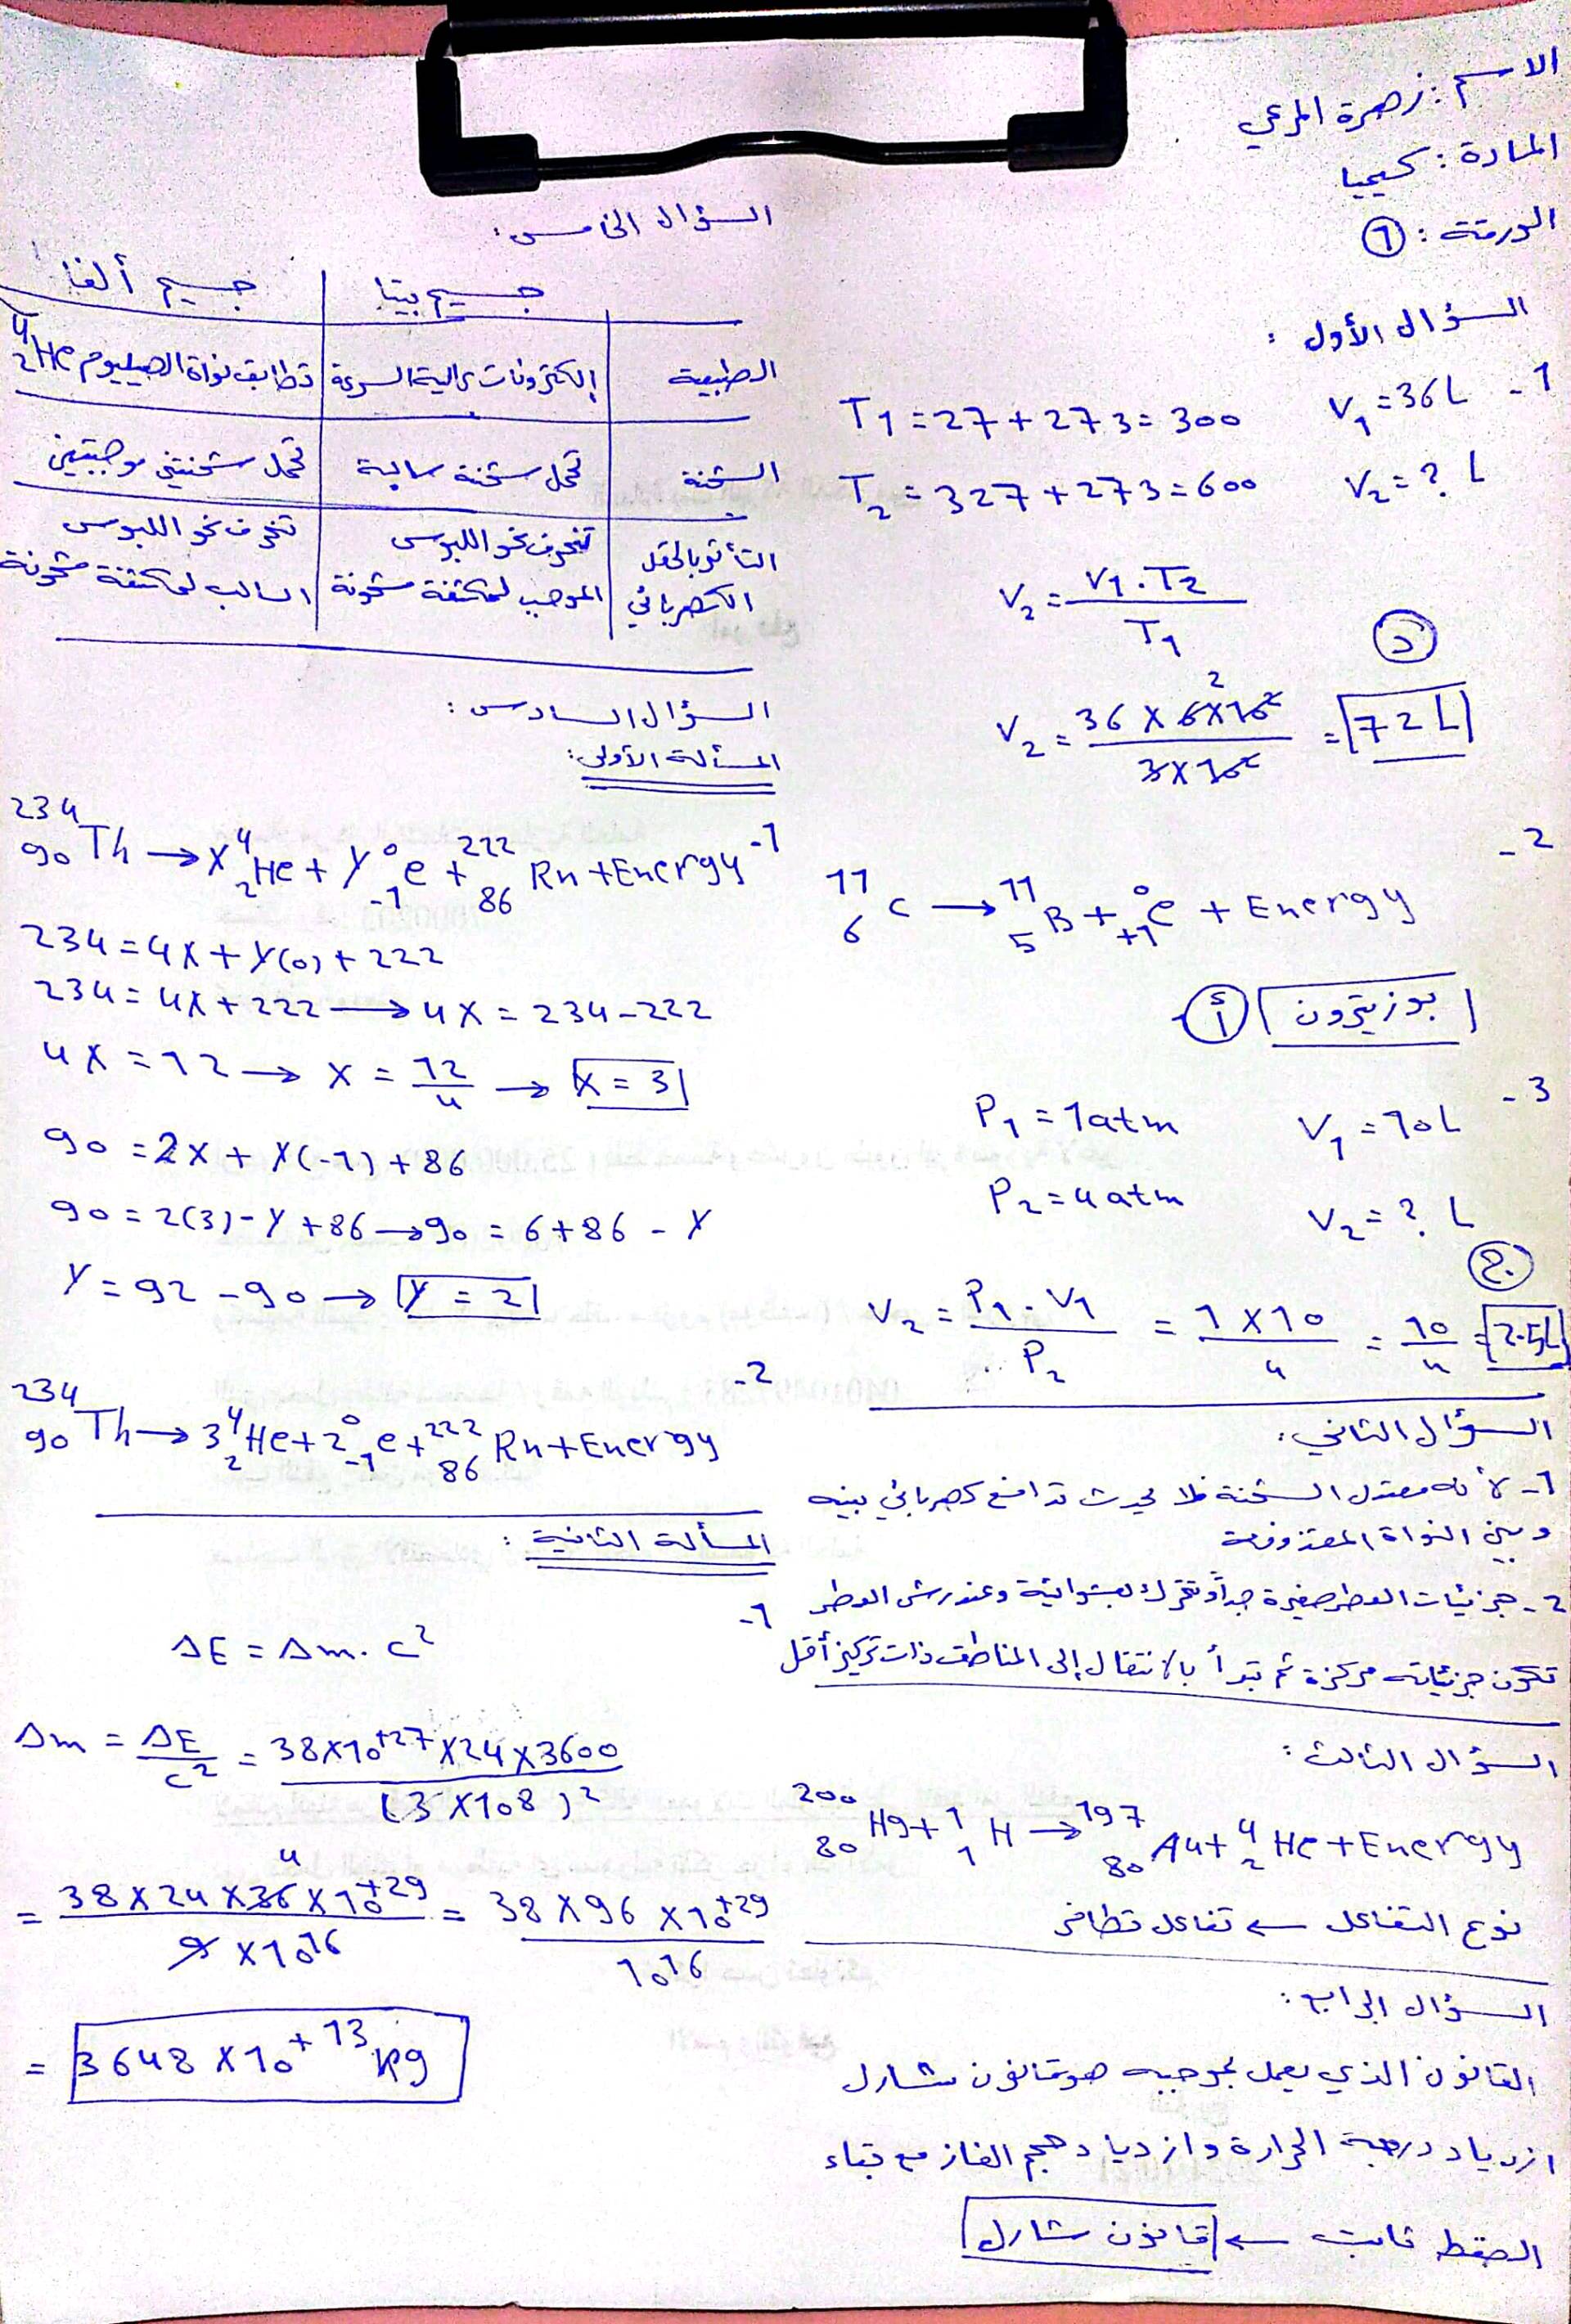 الاسم : زهرة المرعي
المادة : كيميا
الورقة : ①
السؤال الأول :
1- V₁ = 36 L    T₁ = 27 + 273 = 300
V₂ = ? L    T₂ = 327 + 273 = 600
V₂ = V₁ . T₂ / T₁
د
V₂ = 36 × 6×10² / 3×10² = 72 L
2-
¹¹₆C → ¹¹₅B + ⁰₊₁e + Energy
بوزيترون أ
3- V₁ = 10 L    P₁ = 1 atm
V₂ = ? L    P₂ = 4 atm
ج
V₂ = P₁ . V₁ / P₂ = 1 × 10 / 4 = 10 / 4 = 2.5 L
السؤال الثاني :
1- لأنه معتدل الشحنة فلا يحدث تدافع كهربائي بينه
وبين النواة المقذوفة
2- جزئيات العطر صغيرة جداً وتتحرك بعشوائية وعند رش العطر
تكون جزيئاته مركزة ثم تبدأ بالانتقال إلى المناطق ذات تركيز أقل
السؤال الثالث :
²⁰⁰₈₀Hg + ¹₁H → ¹⁹⁷₈₀Au + ⁴₂He + Energy
نوع التفاعل ← تفاعل تطافر
السؤال الرابع :
القانون الذي يعمل بموجبه هو قانون شارل
ازدياد درجة الحرارة وازدياد حجم الغاز مع بقاء
الضغط ثابت ← قانون شارل
السؤال الخامس :
جسيم بيتا    جسيم ألفا
الطبيعة    إلكترونات عالية السرعة    تطابق نواة الهيليوم ⁴₂He
الشحنة    تحمل شحنة سالبة    تحمل شحنتين موجبتين
التأثر بالحقل    تنحرف نحو اللبوس    تنحرف نحو اللبوس
الكهربائي    الموجب لمكثفة مشحونة    السالب لمكثفة مشحونة
السؤال السادس :
المسألة الأولى :
1- ²³⁴₉₀Th → X ⁴₂He + Y ⁰₋₁e + ²²²₈₆Rn + Energy
234 = 4X + Y(0) + 222
234 = 4X + 222 → 4X = 234 - 222
4X = 12 → X = 12 / 4 → X = 3
90 = 2X + Y(-1) + 86
90 = 2(3) - Y + 86 → 90 = 6 + 86 - Y
Y = 92 - 90 → Y = 2
2-
²³⁴₉₀Th → 3 ⁴₂He + 2 ⁰₋₁e + ²²²₈₆Rn + Energy
المسألة الثانية :
1-
ΔE = Δm . C²
Δm = ΔE / C² = 38×10⁺²⁷ × 24 × 3600 / (3×10⁸)²
= 38 × 24 × 36 4 × 10⁺²⁹ / 9 × 10¹⁶ = 38 × 96 × 10⁺²⁹ / 10¹⁶
= 3648 × 10⁺¹³ kg